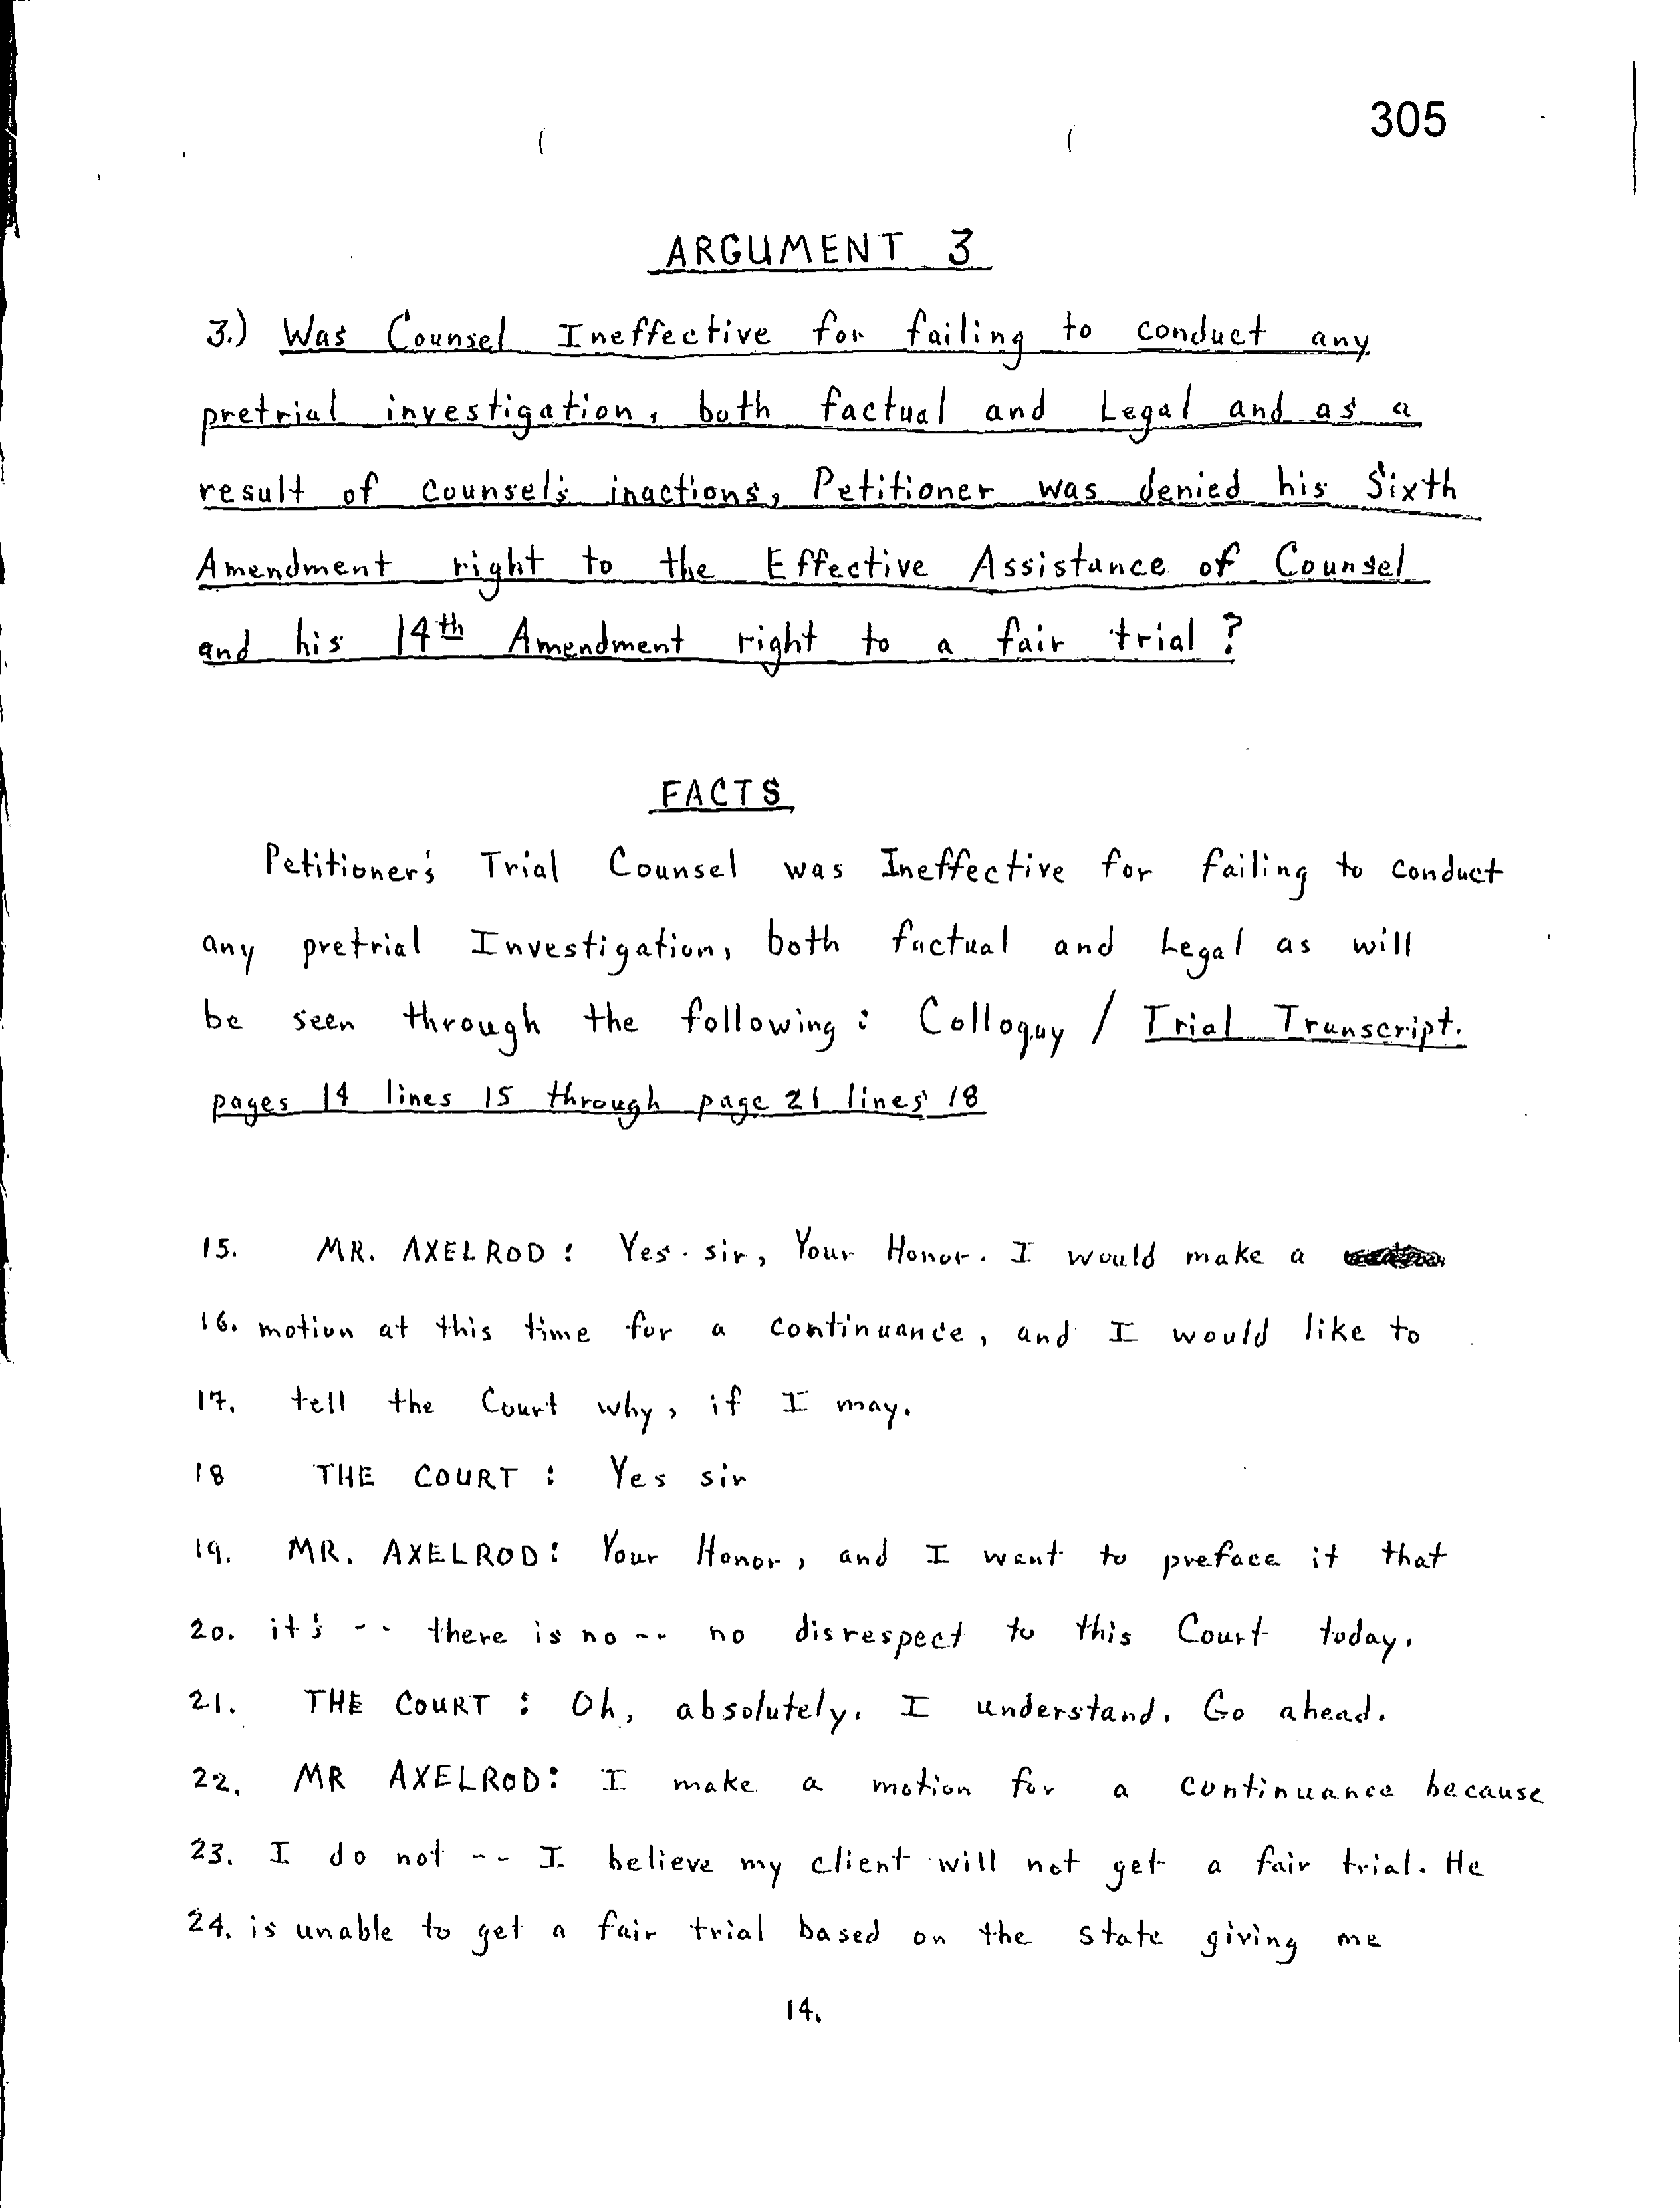 305
ARGUMENT 3
3.) Was Counsel Ineffective for failing to conduct any
pretrial investigation, both factual and Legal and as a
result of counsel's inactions, Petitioner was denied his Sixth
Amendment right to the Effective Assistance of Counsel
and his 14th Amendment right to a fair trial?
FACTS
Petitioner's Trial Counsel was Ineffective for failing to conduct
any pretrial Investigation, both factual and Legal as will
be seen through the following: Colloquy / Trial Transcript.
pages 14 lines 15 through page 21 lines 18
15. MR. AXELROD: Yes sir, Your Honor. I would make a
16. motion at this time for a continuance, and I would like to
17. tell the Court why, if I may.
18 THE COURT: Yes sir
19. MR. AXELROD: Your Honor, and I want to preface it that
20. it's -- there is no -- no disrespect to this Court today.
21. THE COURT: Oh, absolutely. I understand. Go ahead.
22. MR AXELROD: I make a motion for a continuance because
23. I do not -- I believe my client will not get a fair trial. He
24. is unable to get a fair trial based on the state giving me
14.